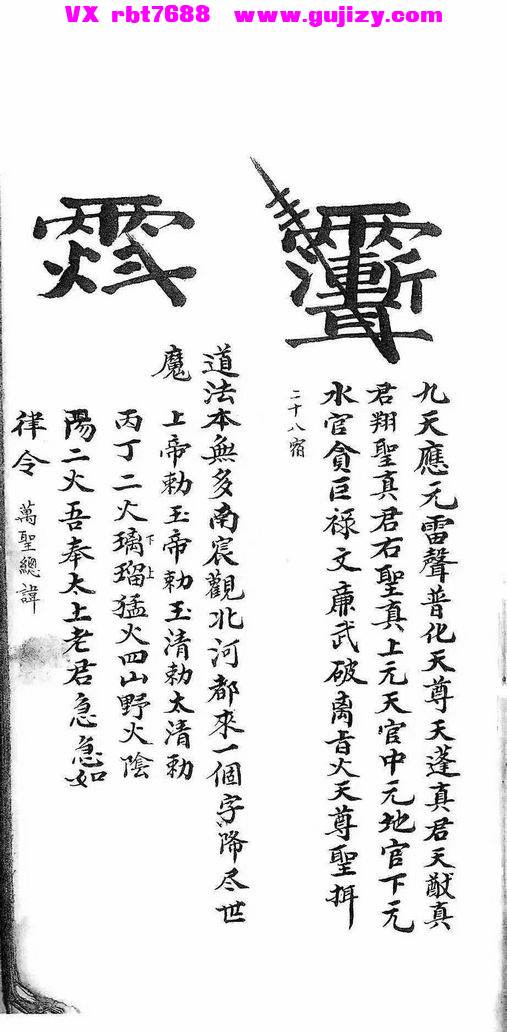 VX rbt7688 www.gujizy.com
九天應元雷聲普化天尊天蓬真君天猷真
君翔聖真君右聖真上元天官中元地官下元
水官貪巨祿文廉武破离火天尊聖
二十八宿
道法本無多南宸觀北河都來一個字降尽世
魔
上帝勅玉帝勅玉清勅太清勅
丙丁二火璃瑠猛火四山野火陰
下上
陽二火吾奉太上老君急急如
律令
萬聖總諱